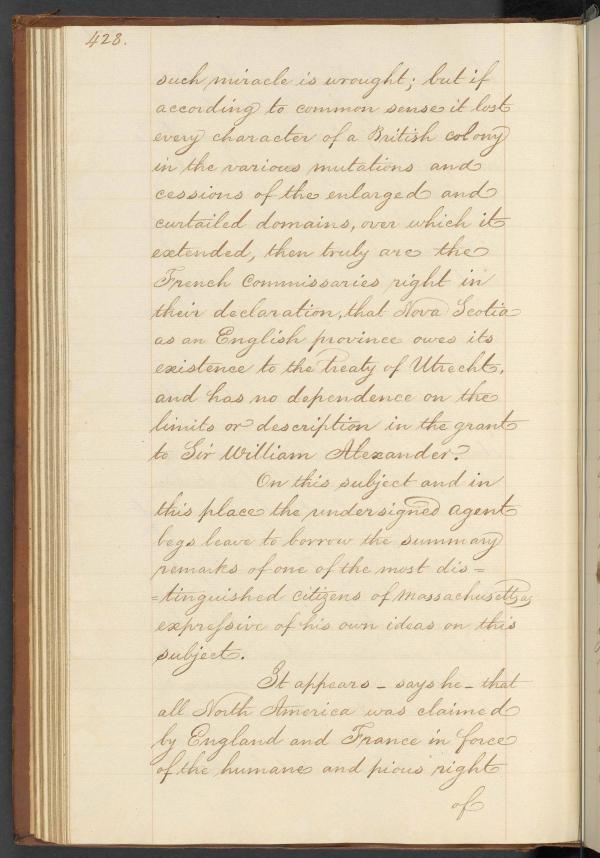 428.
such miracle is wrought; but if
according to common sense it lost
every character of a British colony
in the various mutations and
cessions of the enlarged and
curtailed domains, over which it
extended, then truly are the
French Commissaries right in
their declaration, that Nova Scotia
as an English province owes its
existence to the Treaty of Utrecht,
and has no dependence on the
limits or description in the grant
to Sir William Alexander?
On this subject and in
this place the undersigned agent
begs leave to borrow the summary
remarks of one of the most dis=
=tinguished citizens of Massachusetts, as
expressive of his own ideas on this
subject.
It appears - says he - that
all North America was claimed
by England and France in force
of the humane and pious right
of